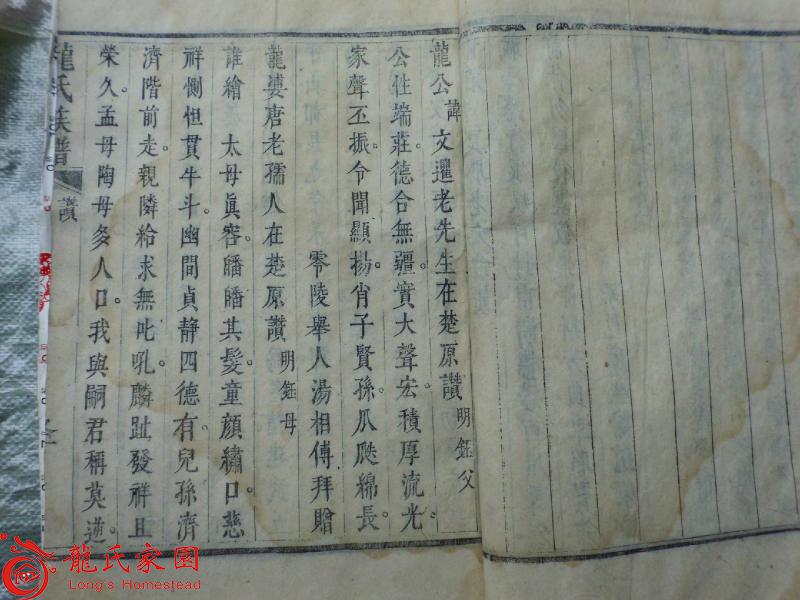 龍公諱文暹老先生在楚原讚 明鈺父
公性端莊。德合無疆。實大聲宏。積厚流光。
家聲丕振。令聞顯揚。肖子賢孫。瓜瓞綿長。
零陵舉人湯相傅拜贈
龍婆唐老孺人在楚原讚 明鈺母
誰繪 太母眞容。皤皤其髮。童顏繡口。慈
祥惻怛貫牛斗。幽閒貞静四德有。兒孫濟
濟階前走。親隣給求無叱吼。麟趾發祥且
榮久。孟母陶母多人口。我與嗣君稱莫逆。
龍氏族譜 讚
龍氏家園
Long's Homestead